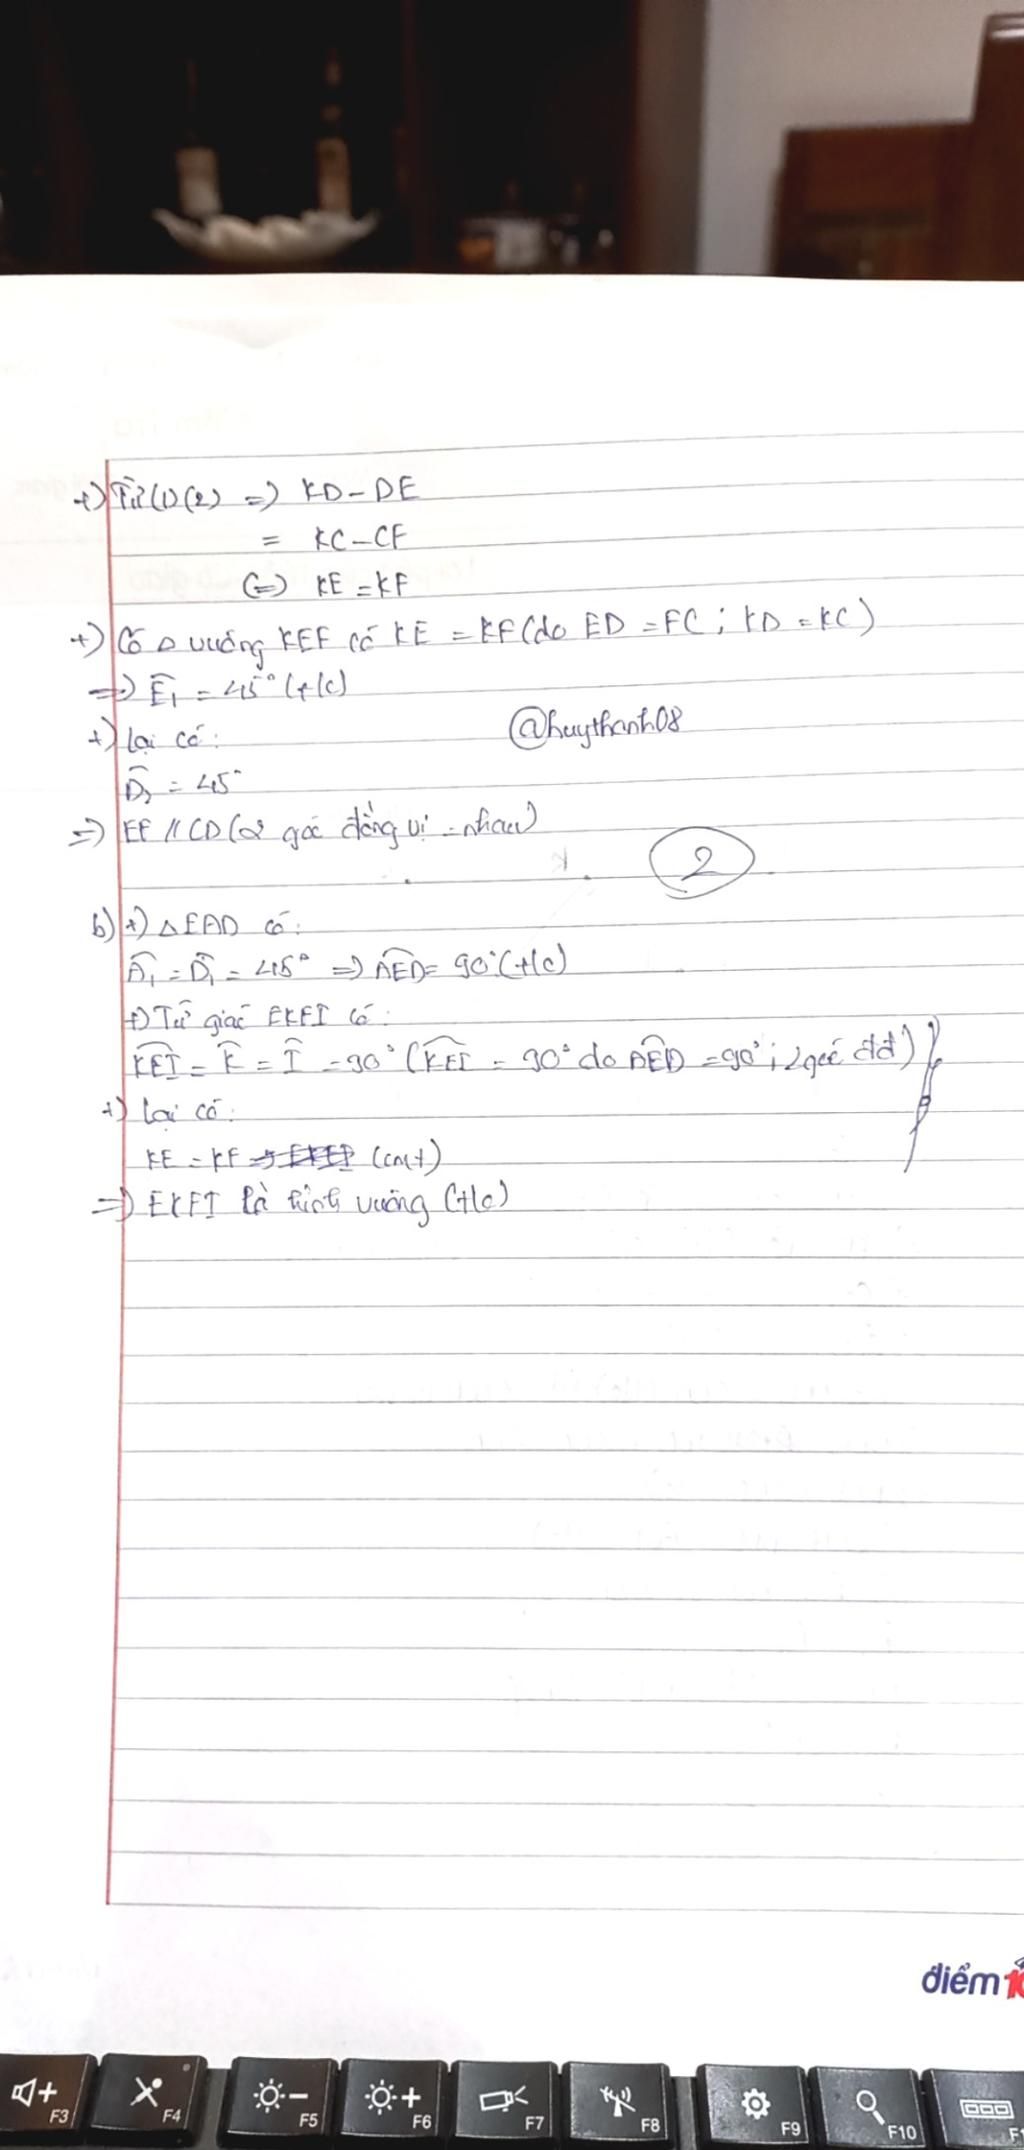 +) Từ (1)(2) => KD - DE
= KC - CF
(=) KE = KF
+) Có Δ vuông KEF có KE = KF (do ED = FC ; KD = KC)
=> Ê₁ = 45° (t/c)
+) Lại có:
@huythanh08
D̂₂ = 45°
=) EF // CD (2 góc đồng vị = nhau)
2
b) +) ΔEAD có:
Â₁ = D̂₁ = 45° => AED = 90° (t/c)
+) Tứ giác EKFI có:
KEI = K̂ = Î = 90° (KEI = 90° do AED = 90° ; 2 góc đđ)
+) Lại có:
KE = KF (cmt)
=) EKFI là hình vuông (t/c)
điểm 10
F3
F4
F5
F6
F7
F8
F9
F10